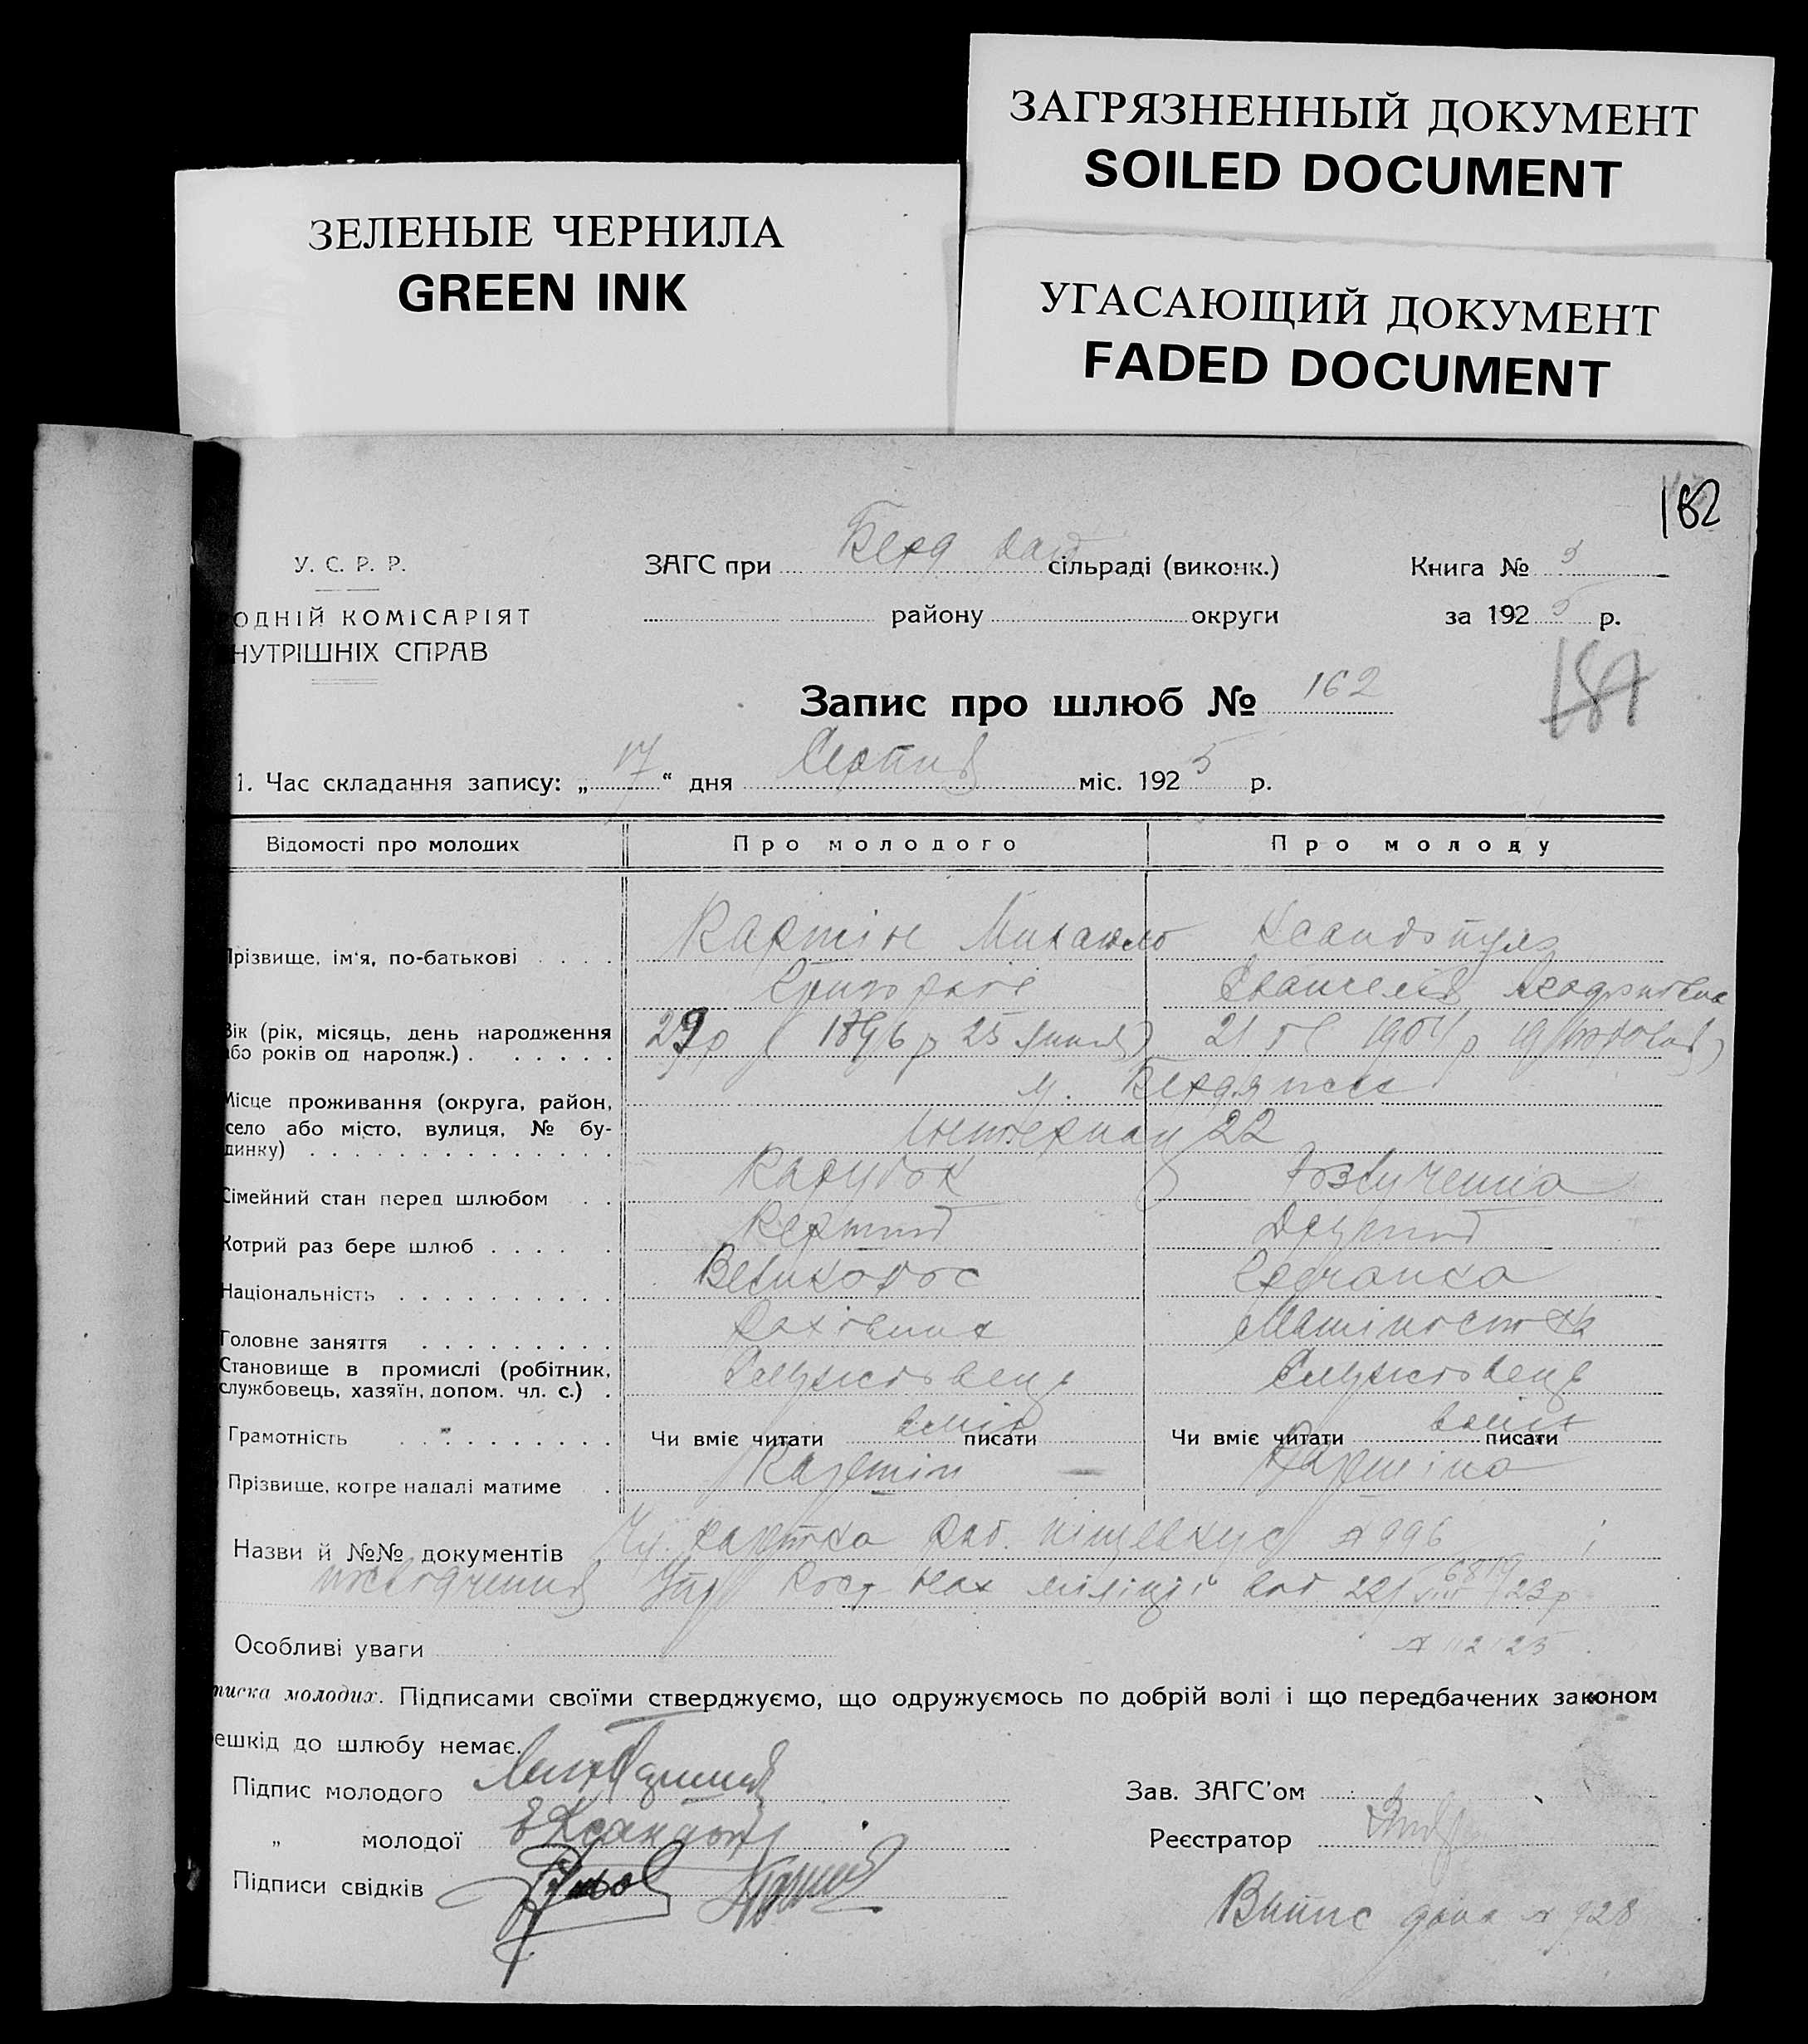 ЗАГРЯЗНЕННЫЙ ДОКУМЕНТ
SOILED DOCUMENT
ЗЕЛЕНЫЕ ЧЕРНИЛА
GREEN INK
УГАСАЮЩИЙ ДОКУМЕНТ
FADED DOCUMENT
182
У. С. Р. Р.
ОДНІЙ КОМІСАРІЯТ
НУТРІШНІХ СПРАВ
ЗАГС при Берд сільраді (виконк.)
району округи
Книга № 5
за 1925 р.
187
Запис про шлюб № 162
1. Час складання запису: „17“ дня Серпня міс. 1925 р.
Відомості про молодих Про молодого Про молоду
Прізвище, ім'я, по-батькові Картін Михайло
Вік (рік, місяць, день народження або років од нарощж.) 29 р (1896 р 25 липня) 21 1904 р 19
Місце проживання (округа, район, село або місто, вулиця, № будинку) м. Бердянськ
Інтернац 22
Сімейний стан перед шлюбом Парубок Розлученна
Котрий раз бере шлюб Другий
Національність Великорос Гречанка
Головне заняття Рахівник Машіністка
Становище в промислі (робітник, службовець, хазяїн, допом. чл. с.) Службовець Службовець
Грамотність Чи вміє читати вміє писати Чи вміє читати вміє писати
Прізвище, котре надалі матиме Картін Картіна
Назви й №№ документів картка № 996
посвідчення міліції від 22/VIII 23 р
6819
№ 112125
Особливі уваги
писка молодих. Підписами своїми стверджуємо, що одружуємось по добрій волі і що передбачених законом
ешкід до шлюбу немає.
Підпис молодого
„ молодої
Підписи свідків
Зав. ЗАГС'ом
Реєстратор
Випис дана № 928